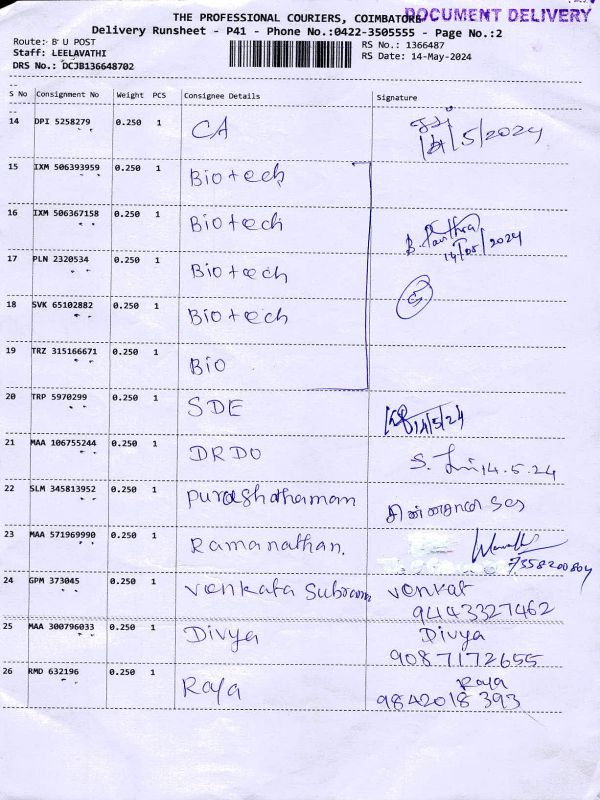 THE PROFESSIONAL COURIERS, COIMBATORE
DOCUMENT DELIVERY
Delivery Runsheet - P41 - Phone No.:0422-3505555 - Page No.:2
Route: B U POST
RS No.: 1366487
Staff: LEELAVATHI
RS Date: 14-May-2024
DRS No.: DCJB136648702
S No Consignment No Weight PCS Consignee Details Signature
14 DPI 5258279 0.250 1 CA 14/5/2024
15 IXM 506393959 0.250 1 Biotech
16 IXM 506367158 0.250 1 Biotech B. 14/05/2024
17 PLN 2320534 0.250 1 Biotech
18 SVK 65102882 0.250 1 Biotech 5
19 TRZ 315166671 0.250 1 Bio
20 TRP 5970299 0.250 1 SDE 14/5/24
21 MAA 106755244 0.250 1 DRDO S. 14.5.24
22 SLM 345813952 0.250 1 Purashothaman
23 MAA 571969990 0.250 1 Ramanathan. 7358200804
24 GPM 373045 0.250 1 Venkata Subram Venkat
9443327462
25 MAA 300796033 0.250 1 Divya Divya
9087172655
26 RMD 632196 0.250 1 Raja Raja
9842018393